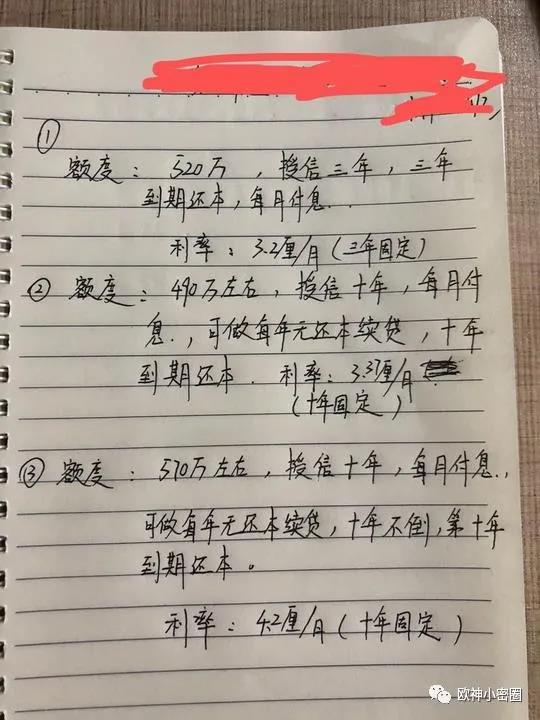 ①
额度：520万，授信三年，三年
到期还本，每月付息..
利率：3.2厘/月（三年固定）
② 额度：490万左右，授信十年，每月付
息.，可做每年无还本续贷，十年
到期还本．利率：3.37厘/月
（十年固定）
③ 额度：570万左右，授信十年，每月付息.，
可做每年无还本续贷，十年不倒，第十年
到期还本。
利率：4.2厘/月（十年固定）
欧神小密圈